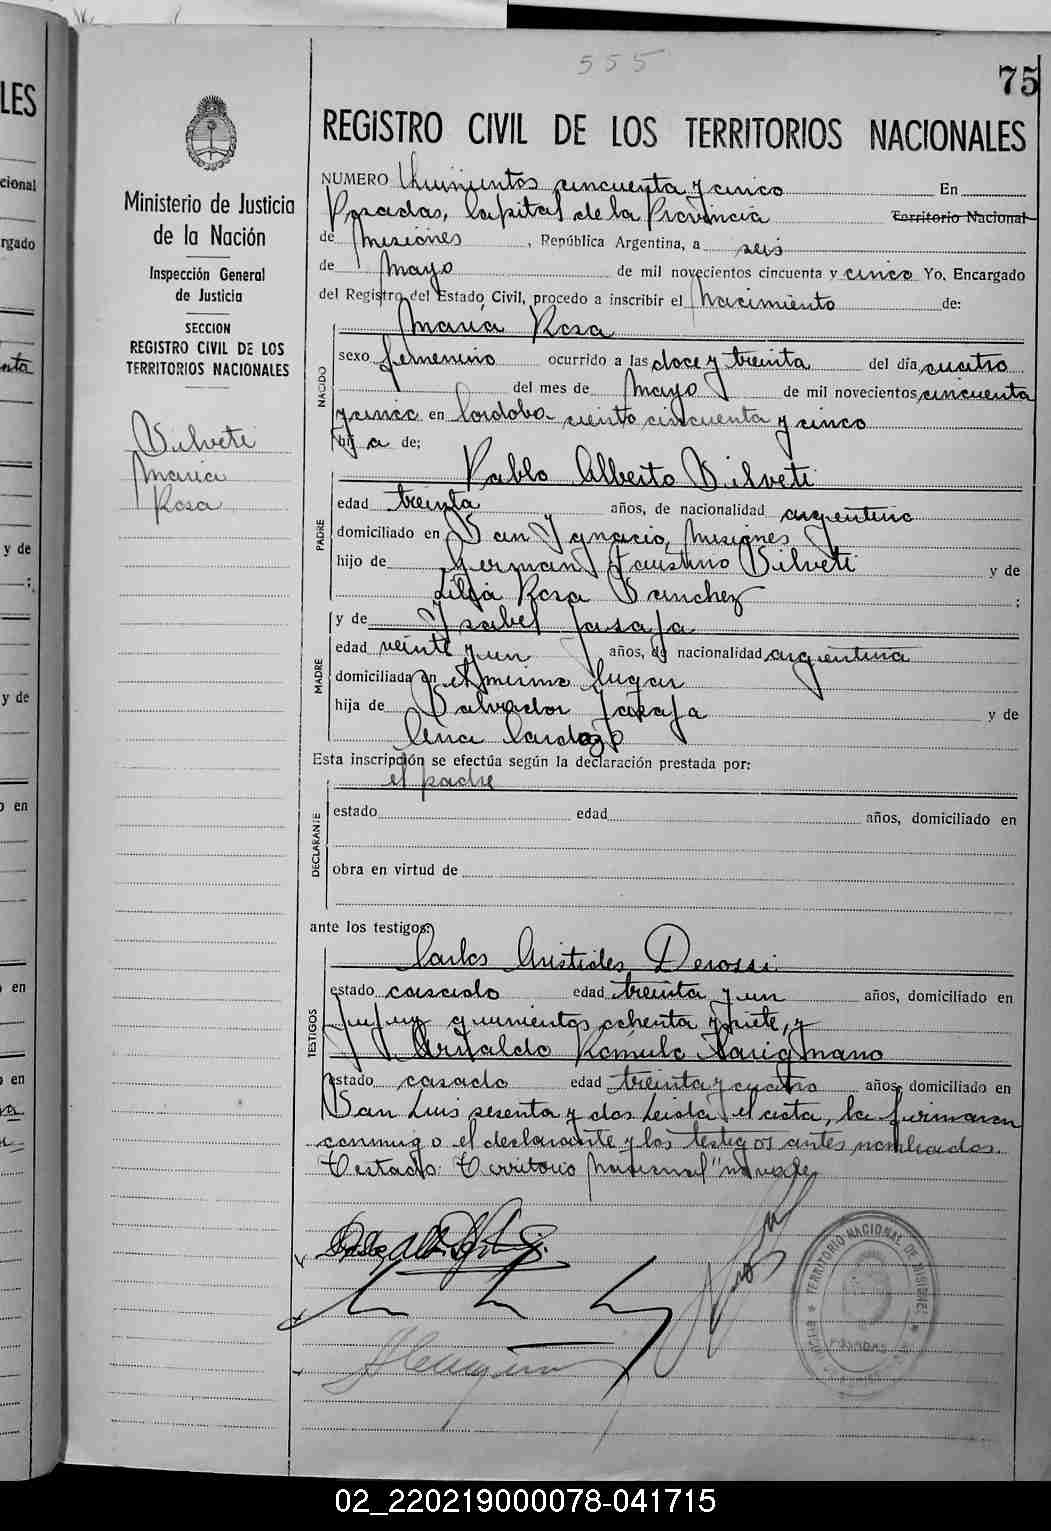 555
75
REGISTRO CIVIL DE LOS TERRITORIOS NACIONALES
Ministerio de Justicia
de la Nación
Inspección General
de Justicia
SECCION
REGISTRO CIVIL DE LOS
TERRITORIOS NACIONALES
Silveti
María
Rosa
NUMERO Quinientos cincuenta y cinco En
Posadas, Capital de la Provincia Territorio Nacional
de Misiones, República Argentina, a seis
de Mayo de mil novecientos cincuenta y cinco Yo, Encargado
del Registro del Estado Civil, procedo a inscribir el Nacimiento de:
María Rosa
NACIDO
sexo femenino ocurrido a las doce y treinta del día cuatro
del mes de Mayo de mil novecientos cincuenta
y cinco en Cordoba ciento cincuenta y cinco
hij a de:
Pablo Alberto Silveti
PADRE
edad treinta años, de nacionalidad argentino
domiciliado en San Ygnacio, Misiones
hijo de German Faustino Silveti y de
Lilia Rosa Sanchez ;
y de Ysabel Jasaja
MADRE
edad veinte y un años, de nacionalidad argentina
domiciliada en el mismo lugar
hija de Salvador y de
Cardozo
Esta inscripción se efectúa según la declaración prestada por:
el padre
DECLARANTE
estado edad años, domiciliado en
obra en virtud de
ante los testigos:
Carlos Aristides Derossi
TESTIGOS
estado casado edad treinta y un años, domiciliado en
Jujuy quinientos ochenta y siete, y
Arnaldo Rómulo
estado casado edad treinta y cuatro años, domiciliado en
San Luis sesenta y dos Leida el acta, la firmaron
conmigo el declarante y los testigos antes nombrados.
Testado: Territorio Nacional" no vale
TERRITORIO NACIONAL DE MISIONES
POSADAS
02_220219000078-041715
LES
cional
rgado
nta
y de
y de
o en
o en
o en